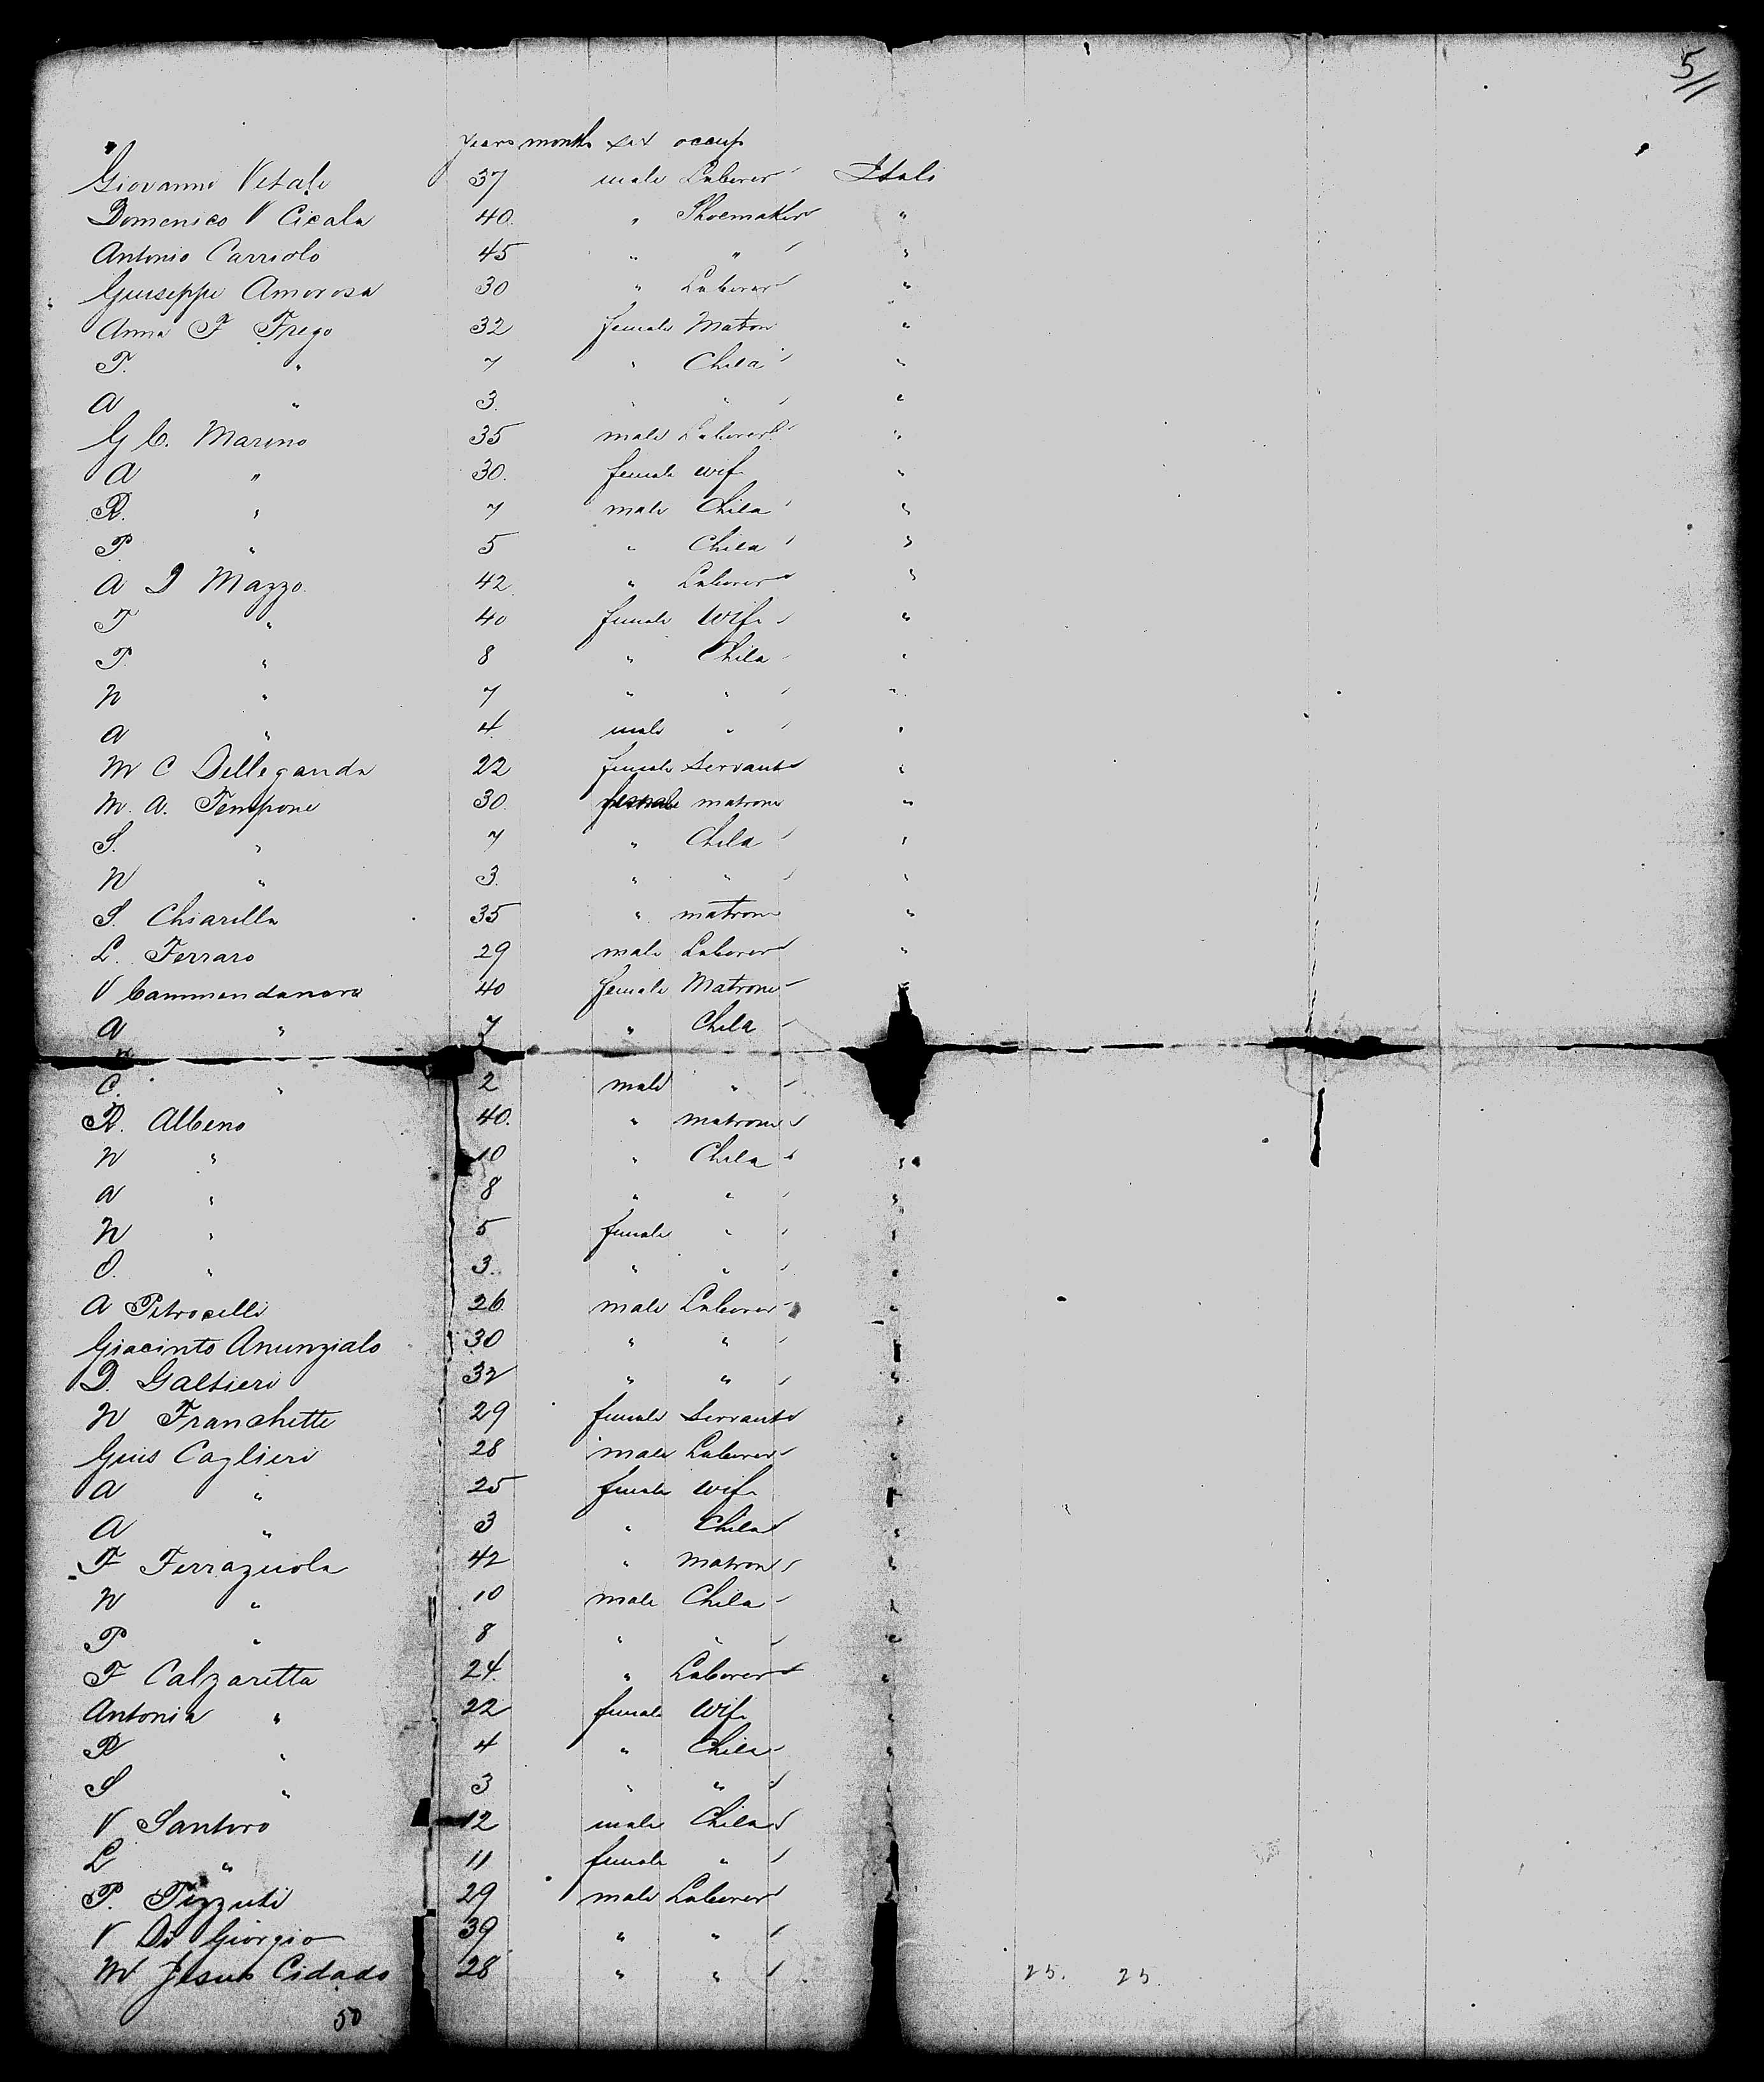 5//
years month sex occup
Giovanni Vitale 37 male Laborer Itali
Domenico V Cicala 40. " Shoemaker "
Antonio Carriolo 45 " " "
Giuseppe Amorosa 30 " Laborer "
Anna F Frego 32 female Matron "
F. " 7 " Child "
A " 3. " " "
G C. Marino 35 male Laborer "
A " 30. female wife "
R. " 7 male Child "
P " 5 " Child "
A D Mazzo. 42. " Laborer "
F " 40 female Wife "
P. " 8 " Child "
N " 7 " " "
A " 4. male " "
M C Delleganda 22 female Servant "
M. A. Tempone 30. female matrone "
S. " 7 " Child "
N " 3. " " "
S. Chiarilla 35 " matrone "
L. Ferraro 29 male Laborer "
V Cammendanara 40 female Matrone "
A " 7 " Child
C. " 2 male "
R. Albeno 40. " matrone
N " 10 " Child "
A " 8 " " "
N " 5 female " "
O. " 3. " " "
A Petrocelli 26. male Laborer "
Giacinto Anunzialo 30 " "
D. Galtieri 32 " " "
N Franchette 29 female Servant "
Gius Caglieri 28 male Laborer "
A " 25 female wife
A " 3 " Child "
F Ferrazuola 42 " matron "
N " 10 male Child "
P " 8 " " "
F Calzaretta 24. " Laborer "
Antonia " 22 female Wife "
R " 4 " Child "
S " 3 " "
V Santoro 12 male Child
L " 11 female "
P. Pizzuti 29 male Laborer
V Di Giorgio 39 " "
M Jesus Cidado 28 " " 25. 25.
50